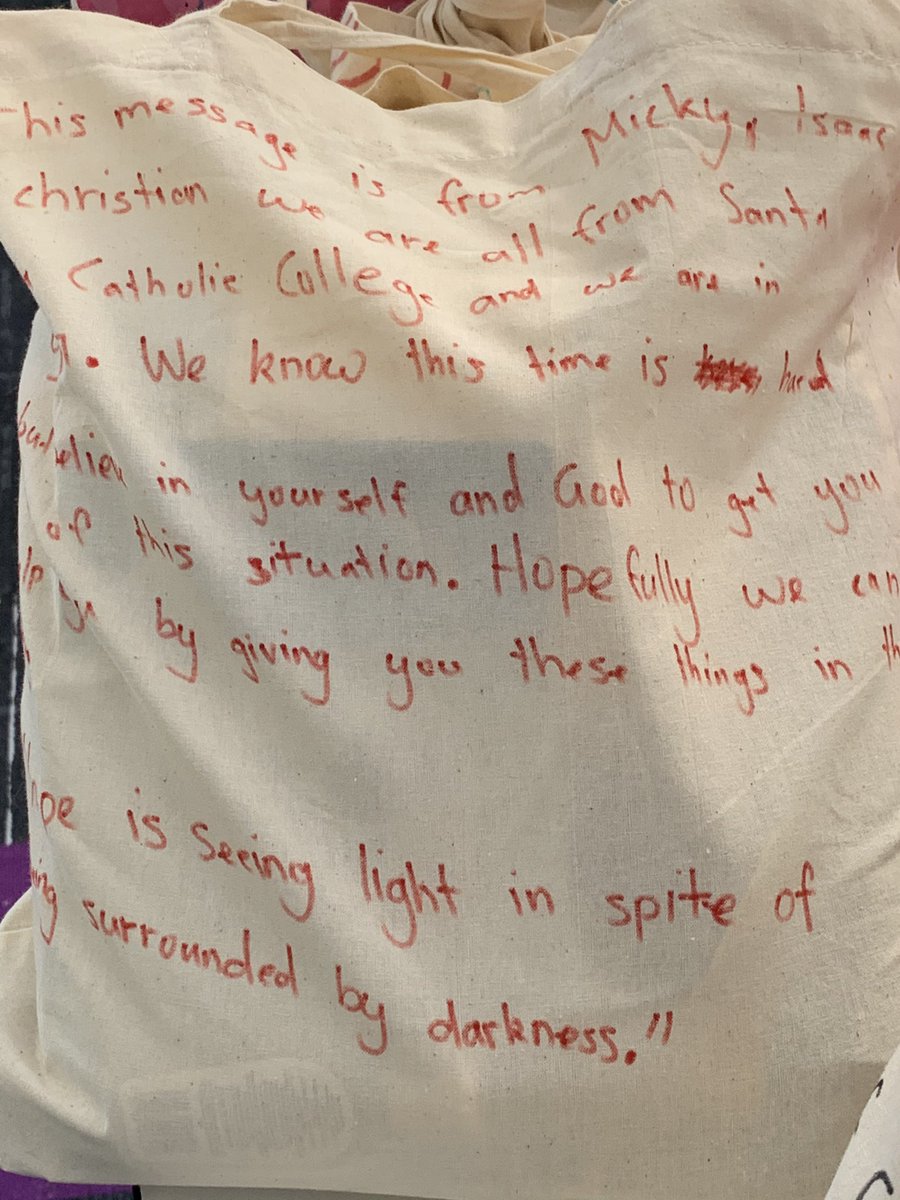 This message is from Micky, Isaac
christian we are all from Santa
Catholic College and we are in
We know this time is hard
but beliew in yourself and God to get you
of this situation. Hopefully we can
by giving you these things in
is seeing light in spite of
surrounded by darkness."